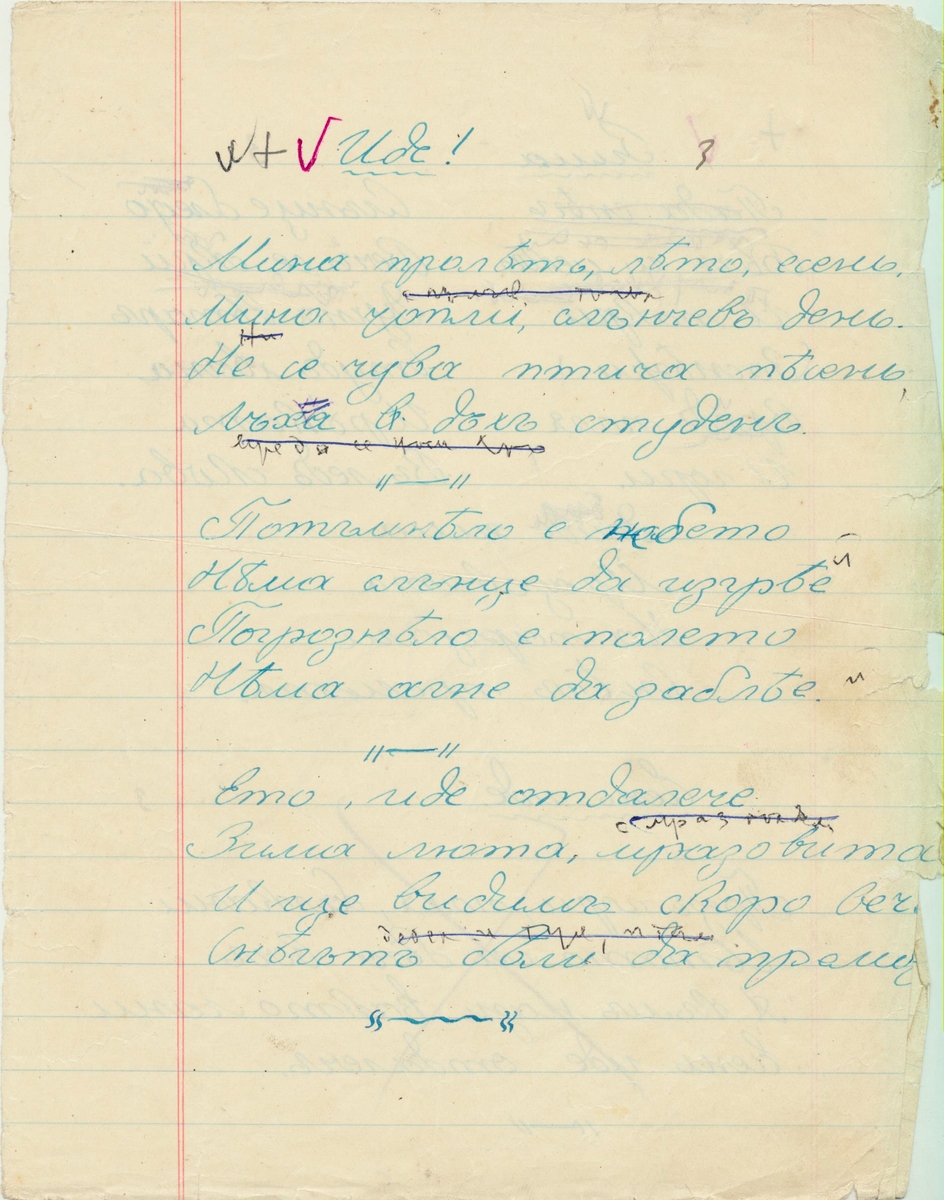 + √ Иде! 3
Мина пролѣть, лѣто, есень,
Мина топли, слънчевъ день.
Не се чува птича пѣсень,
Лъха в дъхъ студенъ.
"—"
Потъмнѣло е небето
Нѣма слънце да изгрѣе
й
Погрознѣло е полето
Нѣма агне да заблѣе.
"—"
Ето, иде отдалече
Зима люта, мразовита
И ще видимъ скоро веч
Снѣгътъ бѣли да